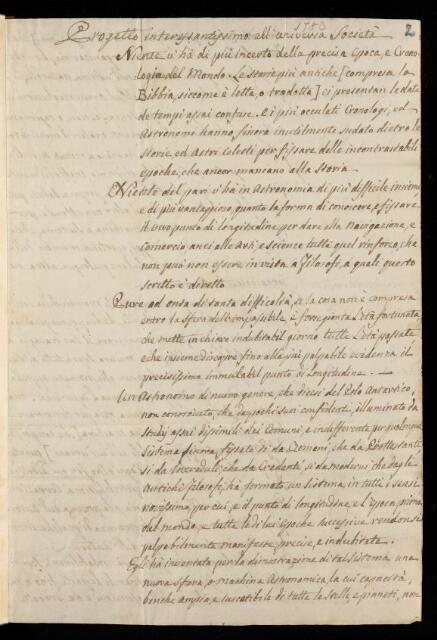 1780
2
Progetto interessantissimo all'universa Società
Niente v'há di più incerto della precisa Epoca, e Crono-
logia del Mondo. Le Storie più antiche [compresa la
Bibbia, siccome è letta, o tradotta] ci presentan le date
de tempi assai confuse. E i più occulati Cronologi, ed
Astronomi hanno finora inutilmente sudato dietro le
Storie, ed Astri Celesti per fissare delle incontrastabili
epoche, che ancor mancano alla Storia.
Niente del pari v'há in Astronomia di più difficile insieme
e di più vantaggioso, quanto la forma di conoscere, e fissare
il vero punto di longitudine per dare alla Navigazione, e
Comercio anzi alle Arti, e Scienze tutte quel rinforzo, che
non può non essere in vista a Filosofi, a quali questo
scritto è diretto.
Pure ad onta di tanta difficoltà, se la cosa non è compresa
entro la sfera dell'impossibile, è forse giunta l'età fortunata,
che mette in chiaro indubitabil giorno tutte l'età passate
e che insieme discopre fino alla più palpabile evidenza il
precisissimo immutabil punto di Longitudine. —
Un Astronomo di nuovo genere, che diresi del Polo Antartico,
non conosciuto, che da pochi suoi confidenti, illuminato da
Studj assai dissimili dai Comuni, e indifferente per qualunque
Sistema finora, fissato si da Romani, che da Protestanti
si da Increduli, che da Credenti, si da moderni, che dagli
Antichi filosofi, há formato un Sistema in tutti i sensi
novissimo, per cui, e il punto di longitudine, e l'epoca prima
del mondo, e tutte le di lui epoche successive rendonsi
palpabilmente manifeste, precise, e indubitate.
Egli há inventata per la dimostrazione di tal Sistema una
nuova sfera, o macchina Astronomica, la cui capacità,
benche ampia, e suscettibile di tutte le stelle, e pianeti, non